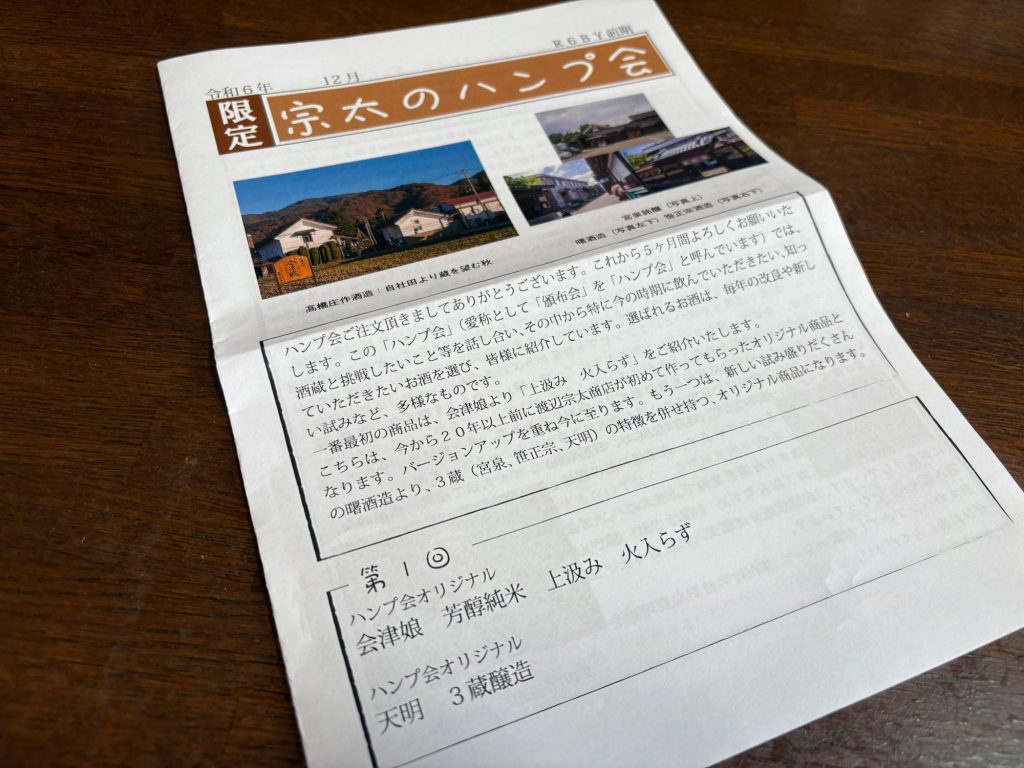 令和6年 12月 R6BY前期
限定 宗太のハンプ会
宮泉銘醸(写真上)
曙酒造(写真左下)笹正宗酒造(写真右下)
高橋庄作酒造:自社田より蔵を望む秋
ハンプ会ご注文頂きましてありがとうございます。これから5ヶ月間よろしくお願いいた
します。この「ハンプ会」(愛称として「頒布会」を「ハンプ会」と呼んでいます)では、
酒蔵と挑戦したいこと等を話し合い、その中から特に今の時期に飲んでいただきたい、知っ
ていただきたいお酒を選び、皆様に紹介しています。選ばれるお酒は、毎年の改良や新し
い試みなど、多様なものです。
一番最初の商品は、会津娘より「上汲み 火入らず」をご紹介いたします。
こちらは、今から20年以上前に渡辺宗太商店が初めて作ってもらったオリジナル商品と
なります。バージョンアップを重ね今に至ります。もう一つは、新しい試み盛りだくさん
の曙酒造より、3蔵(宮泉、笹正宗、天明)の特徴を併せ持つ、オリジナル商品になります。
第1回
ハンプ会オリジナル
会津娘 芳醇純米 上汲み 火入らず
ハンプ会オリジナル
天明 3蔵醸造